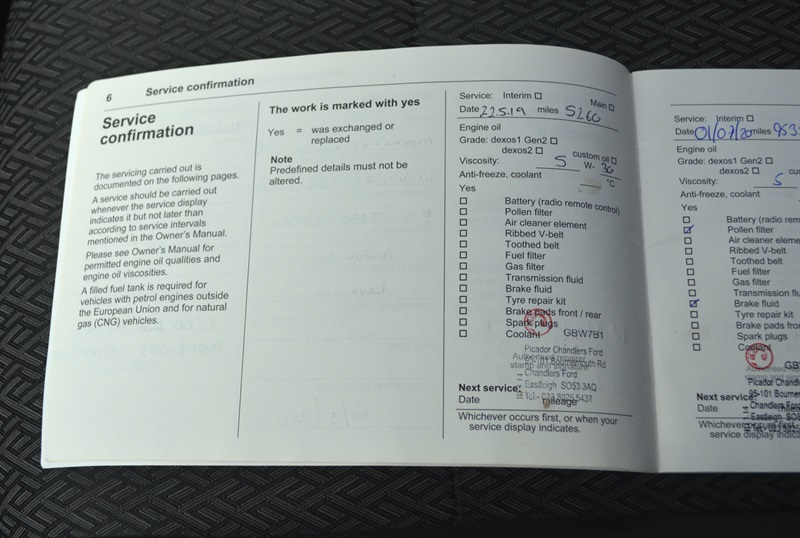 6
Service confirmation
Service
confirmation
The servicing carried out is
documented on the following pages.
A service should be carried out
whenever the service display
indicates it but not later than
according to service intervals
mentioned in the Owner's Manual.
Please see Owner's Manual for
permitted engine oil qualities and
engine oil viscosities.
A filled fuel tank is required for
vehicles with petrol engines outside
the European Union and for natural
gas (CNG) vehicles.
The work is marked with yes
Yes = was exchanged or
replaced
Note
Predefined details must not be
altered.
Service: Interim ☐ Main ☐
Date 22.5.19 miles 5260
Engine oil
Grade: dexos1 Gen2 ☐
dexos2 ☐ custom oil ☐
Viscosity: 5 W- 30
Anti-freeze, coolant °C
Yes
☐ Battery (radio remote control)
☐ Pollen filter
☐ Air cleaner element
☐ Ribbed V-belt
☐ Toothed belt
☐ Fuel filter
☐ Gas filter
☐ Transmission fluid
☐ Brake fluid
☐ Tyre repair kit
☐ Brake pads front / rear
☐ Spark plugs
☐ Coolant GBW7B1
Picador Chandlers Ford
Authorised repairer
stamp and signature
Chandlers Ford
Eastleigh SO53 3AQ
Next service:
Date mileage
Whichever occurs first, or when your
service display indicates.
Service: Interim ☐
Date 01/07/20 miles
Engine oil
Grade: dexos1 Gen2 ☐
dexos2 ☐
Viscosity: 5
Anti-freeze, coolant
Yes
☐ Battery (radio rem
☑ Pollen filter
☐ Air cleaner eleme
☐ Ribbed V-belt
☐ Toothed belt
☐ Fuel filter
☐ Gas filter
☐ Transmission flu
☑ Brake fluid
☐ Tyre repair kit
☐ Brake pads fron
☐ Spark plugs
☐ Coolant
Picador Chandl
Next service:
Date
Chandlers
Eastleigh
Whichever occurs first
service display indica